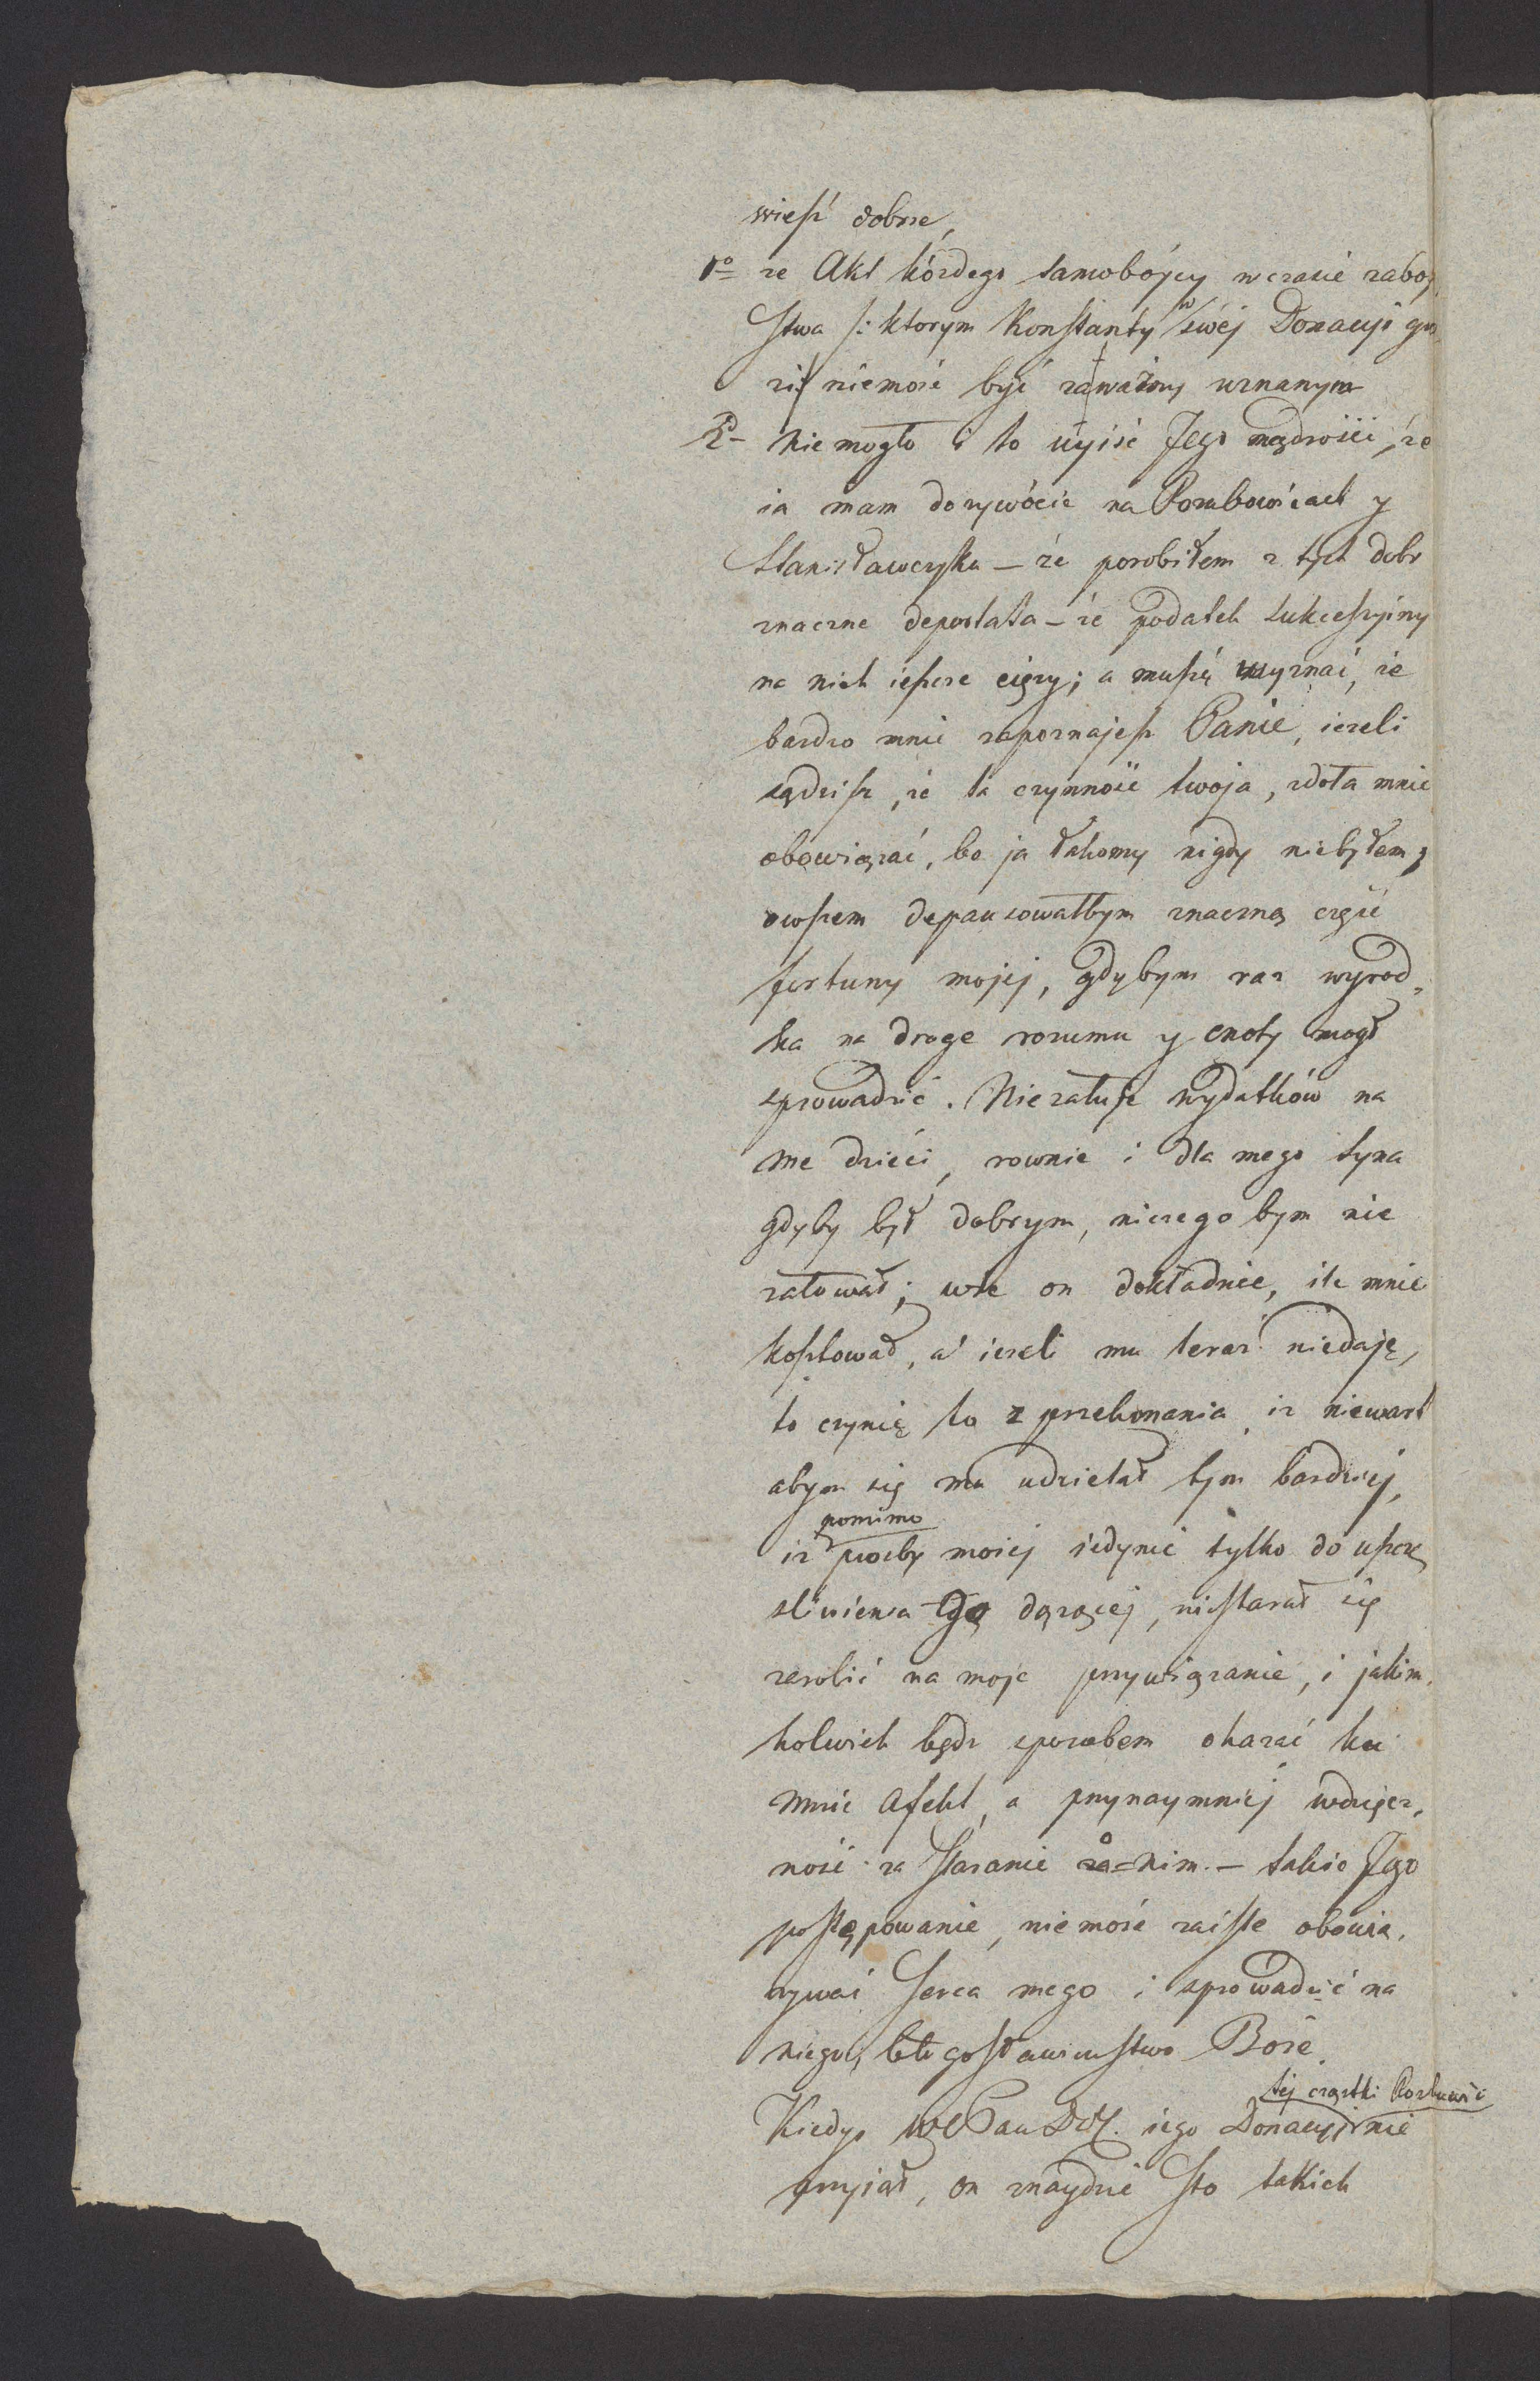 wiesz dobrze,
1o ze Akt kózdego samobójcy w czasie zaboj
stwa /: ktorym Konstanty w swéj Donacyi gro
zi :/ niemoże być za ważny uznanym
2o Niemogło i to uyiśc Jego mądrości, że
ia mam dozywócie na y
Stanisławczyku – że porobiłem z tych dobr
znaczne depostata – że podatek sukcessyiny
na nich ieszcze cięzy; a muszę wyznać, że
bardzo mnie zapoznajesz Panie, iezeli
sądzisz, ze ta czynność twoja, zdoła mnie
obowiązać, bo ja łakomy nigdy niebyłem,
owszem depansowałbym znaczną część
fortuny mojej, gdybym raz wyrod„
ka na droge rozumu y cnoty mogł
sprowadzić. Niezałuję wydatków na
me dzieci, rownie i dla mego syna
gdyby był dobrym, niczego bym nie
załował; wie on dokładnie, ile mnie
kosztował, a iezeli mu teraz niedaję,
to czynię to z przekonania, iz niewart
abym się mu udzielał tym bardziej,
iz pomimo prozby moiej iedynie tylko do uszczę
sliwienia Go dązącej, niestarał się
zarobić na moje przywiązanie, i jakim„
kolwiek bądz sposobem okazać ku
mnie Afekt, a przynaymniej wdzięcz„
ność za staranie o nim. – takie Jego
postępowanie, niemoże zaiste obowią„
zywać serca mego i sprowadzić na
niego, błogosławieństwo Boże.
Kiedyś WPan Dob. iego Donacyi tej cząstki nie
przyiął, on znaydzie sto takich